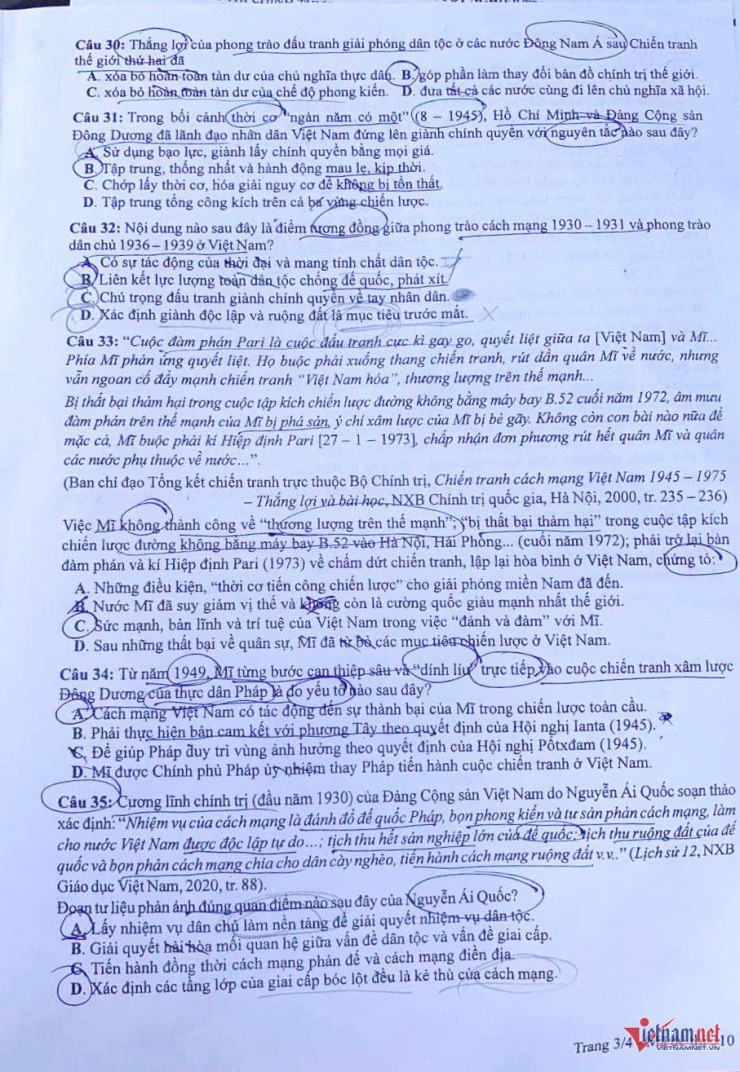 Câu 30: Thắng lợi của phong trào đấu tranh giải phóng dân tộc ở các nước Đông Nam Á sau Chiến tranh
thế giới thứ hai đã
A. xóa bỏ hoàn toàn tàn dư của chủ nghĩa thực dân. B. góp phần làm thay đổi bản đồ chính trị thế giới.
C. xóa bỏ hoàn toàn tàn dư của chế độ phong kiến. D. đưa tất cả các nước cùng đi lên chủ nghĩa xã hội.
Câu 31: Trong bối cảnh thời cơ "ngàn năm có một" (8 – 1945), Hồ Chí Minh và Đảng Cộng sản
Đông Dương đã lãnh đạo nhân dân Việt Nam đứng lên giành chính quyền với nguyên tắc nào sau đây?
A. Sử dụng bạo lực, giành lấy chính quyền bằng mọi giá.
B. Tập trung, thống nhất và hành động mau lẹ, kịp thời.
C. Chớp lấy thời cơ, hóa giải nguy cơ để không bị tổn thất.
D. Tập trung tổng công kích trên cả ba vùng chiến lược.
Câu 32: Nội dung nào sau đây là điểm tương đồng giữa phong trào cách mạng 1930 – 1931 và phong trào
dân chủ 1936 – 1939 ở Việt Nam?
A. Có sự tác động của thời đại và mang tính chất dân tộc.
B. Liên kết lực lượng toàn dân tộc chống đế quốc, phát xít.
C. Chú trọng đấu tranh giành chính quyền về tay nhân dân.
D. Xác định giành độc lập và ruộng đất là mục tiêu trước mắt.
Câu 33: "Cuộc đàm phán Pari là cuộc đấu tranh cực kì gay go, quyết liệt giữa ta [Việt Nam] và Mĩ...
Phía Mĩ phản ứng quyết liệt. Họ buộc phải xuống thang chiến tranh, rút dần quân Mĩ về nước, nhưng
vẫn ngoan cố đẩy mạnh chiến tranh "Việt Nam hóa", thương lượng trên thế mạnh...
Bị thất bại thảm hại trong cuộc tập kích chiến lược đường không bằng máy bay B.52 cuối năm 1972, âm mưu
đàm phán trên thế mạnh của Mĩ bị phá sản, ý chí xâm lược của Mĩ bị bẻ gãy. Không còn con bài nào nữa để
mặc cả, Mĩ buộc phải kí Hiệp định Pari [27 – 1 – 1973], chấp nhận đơn phương rút hết quân Mĩ và quân
các nước phụ thuộc về nước...".
(Ban chỉ đạo Tổng kết chiến tranh trực thuộc Bộ Chính trị, Chiến tranh cách mạng Việt Nam 1945 – 1975
– Thắng lợi và bài học, NXB Chính trị quốc gia, Hà Nội, 2000, tr. 235 – 236)
Việc Mĩ không thành công về "thương lượng trên thế mạnh"; "bị thất bại thảm hại" trong cuộc tập kích
chiến lược đường không bằng máy bay B.52 vào Hà Nội, Hải Phòng... (cuối năm 1972); phải trở lại bàn
đàm phán và kí Hiệp định Pari (1973) về chấm dứt chiến tranh, lập lại hòa bình ở Việt Nam, chứng tỏ:
A. Những điều kiện, "thời cơ tiến công chiến lược" cho giải phóng miền Nam đã đến.
B. Nước Mĩ đã suy giảm vị thế và không còn là cường quốc giàu mạnh nhất thế giới.
C. Sức mạnh, bản lĩnh và trí tuệ của Việt Nam trong việc "đánh và đàm" với Mĩ.
D. Sau những thất bại về quân sự, Mĩ đã từ bỏ các mục tiêu chiến lược ở Việt Nam.
Câu 34: Từ năm 1949, Mĩ từng bước can thiệp sâu và "dính líu" trực tiếp vào cuộc chiến tranh xâm lược
Đông Dương của thực dân Pháp là do yếu tố nào sau đây?
A. Cách mạng Việt Nam có tác động đến sự thành bại của Mĩ trong chiến lược toàn cầu.
B. Phải thực hiện bản cam kết với phương Tây theo quyết định của Hội nghị Ianta (1945).
C. Để giúp Pháp duy trì vùng ảnh hưởng theo quyết định của Hội nghị Pốtxđam (1945).
D. Mĩ được Chính phủ Pháp ủy nhiệm thay Pháp tiến hành cuộc chiến tranh ở Việt Nam.
Câu 35: Cương lĩnh chính trị (đầu năm 1930) của Đảng Cộng sản Việt Nam do Nguyễn Ái Quốc soạn thảo
xác định: "Nhiệm vụ của cách mạng là đánh đổ đế quốc Pháp, bọn phong kiến và tư sản phản cách mạng, làm
cho nước Việt Nam được độc lập tự do...; tịch thu hết sản nghiệp lớn của đế quốc; tịch thu ruộng đất của đế
quốc và bọn phản cách mạng chia cho dân cày nghèo, tiến hành cách mạng ruộng đất v.v.." (Lịch sử 12, NXB
Giáo dục Việt Nam, 2020, tr. 88).
Đoạn tư liệu phản ánh đúng quan điểm nào sau đây của Nguyễn Ái Quốc?
A. Lấy nhiệm vụ dân chủ làm nền tảng để giải quyết nhiệm vụ dân tộc.
B. Giải quyết hài hòa mối quan hệ giữa vấn đề dân tộc và vấn đề giai cấp.
C. Tiến hành đồng thời cách mạng phản đế và cách mạng điền địa.
D. Xác định các tầng lớp của giai cấp bóc lột đều là kẻ thù của cách mạng.
Trang 3/4
vietnamnet
VIETNAMNET.VN
10